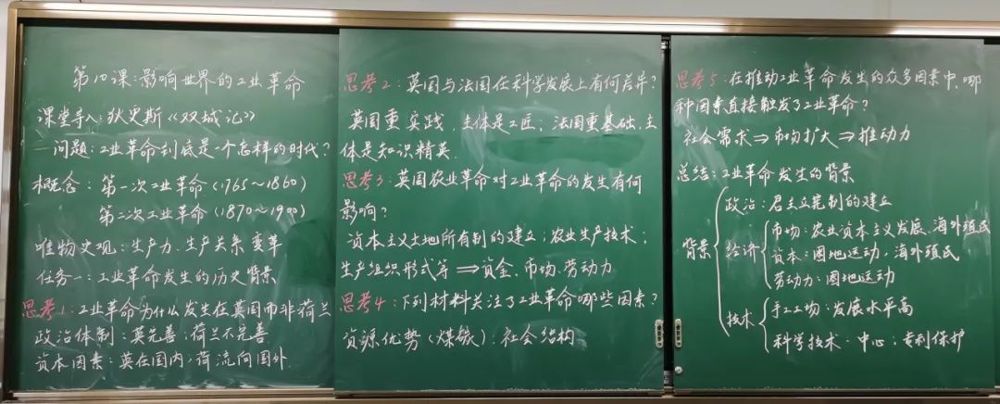 第10课:影响世界的工业革命
课堂导入:狄更斯《双城记》
问题:工业革命到底是一个怎样的时代?
概念:第一次工业革命(1765～1860)
第二次工业革命(1870～1900)
唯物史观:生产力.生产关系 变革
任务一:工业革命发生的历史背景
思考1:工业革命为什么发生在英国而非荷兰
政治体制:英完善;荷兰不完善
资本因素:英在国内;荷流向国外.
思考2:英国与法国在科学发展上有何差异?
英国重实践.主体是工匠;法国重基础.主
体是知识精英.
思考3:英国农业革命对工业革命的发生有何
影响?
资本主义土地所有制的建立;农业生产技术;
生产组织形式等⇒资金.市场.劳动力
思考4:下列材料关注了工业革命哪些因素?
资源优势(煤铁);社会结构
思考5:在推动工业革命发生的众多因素中,哪
种因素直接触发了工业革命?
社会需求⇒市场扩大⇒推动力
总结:工业革命发生的背景
背景
政治:君主立宪制的建立
经济
市场:农业资本主义发展.海外殖民
资本:圈地运动,海外殖民
劳动力:圈地运动
技术
手工工场:发展水平高
科学技术:中心;专利保护